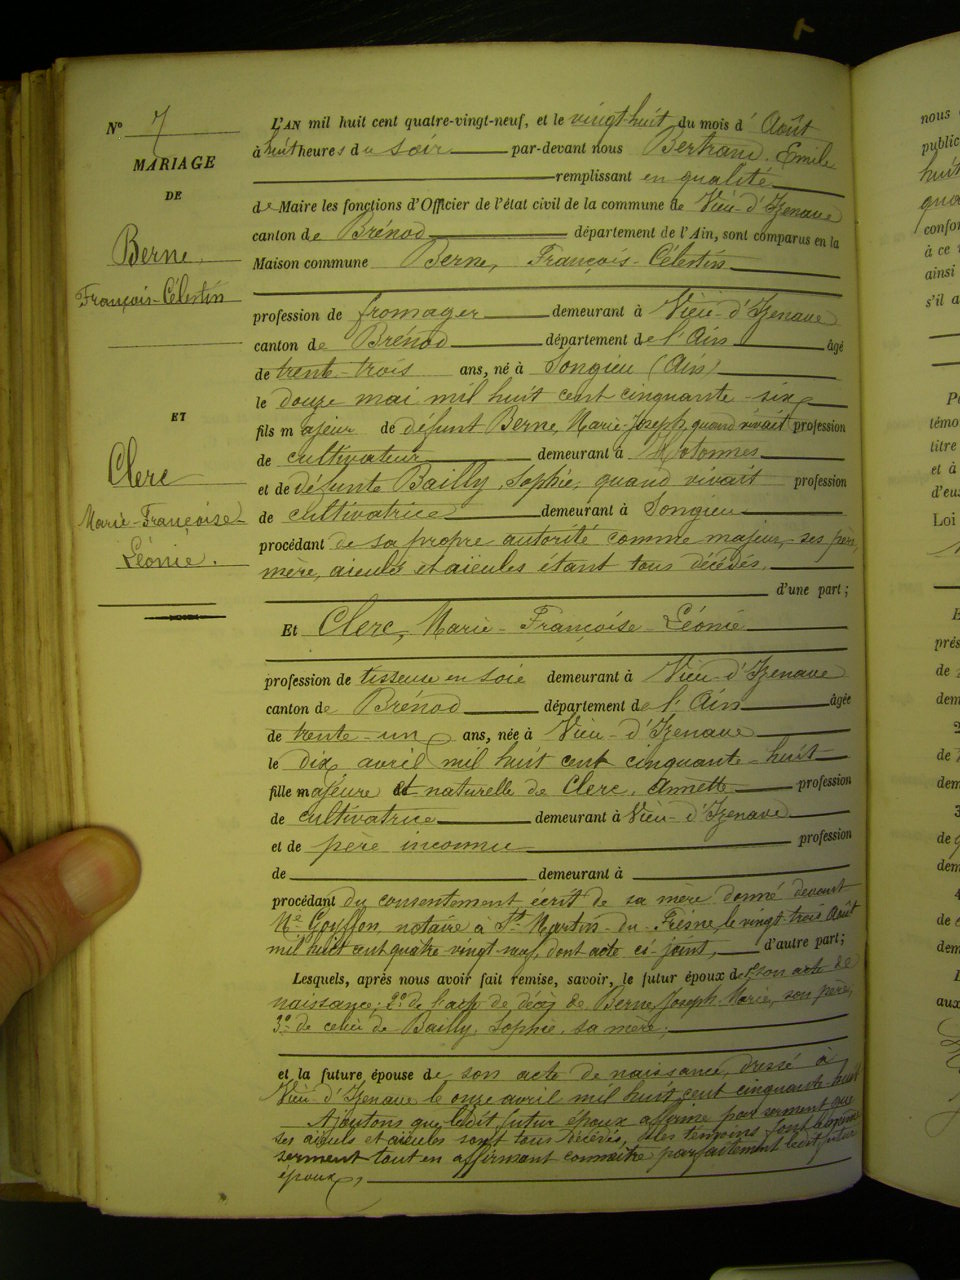 N° 7
MARIAGE
DE
Berne
François-Célestin
ET
Clerc
Marie-Françoise-
Léonie.
L'AN mil huit cent quatre-vingt-neuf, et le vingt-huit du mois d' Août
à huit heures du soir par-devant nous Bertrand, Emile
remplissant en qualité
de Maire les fonctions d'Officier de l'état civil de la commune de Vieu-d'Izenave
canton de Brénod département de l'Ain, sont comparus en la
Maison commune Berne, François-Célestin
profession de fromager demeurant à Vieu-d'Izenave
canton de Brénod département de l'Ain âgé
de trente-trois ans, né à Songieu (Ain)
le douze mai mil huit cent cinquante-six
fils majeur de défunt Berne, Marie-Joseph, quand vivait profession
de cultivateur demeurant à Hotonnes
et de défunte Bailly, Sophie, quand vivait profession
de cultivatrice demeurant à Songieu
procédant de sa propre autorité comme majeur, ses père,
mère, aïeuls et aïeules étant tous décédés,
d'une part;
Et Clerc, Marie-Françoise-Léonie
profession de tisseuse en soie demeurant à Vieu-d'Izenave
canton de Brénod département de l'Ain âgée
de trente-un ans, née à Vieu-d'Izenave
le dix avril mil huit cent cinquante-huit
fille majeure et naturelle de Clerc, Annette profession
de cultivatrice demeurant à Vieu-d'Izenave
et de père inconnu profession
de demeurant à
procédant du consentement écrit de sa mère donné devant
Me Goyffon, notaire à St Martin-du-Fresne le vingt-trois Août
mil huit cent quatre vingt neuf, dont acte ci-joint, d'autre part;
Lesquels, après nous avoir fait remise, savoir, le futur époux de 1° son acte de
naissance; 2° de l'acte de décès de Berne, Joseph-Marie, son père,
3° de celui de Bailly, Sophie, sa mère;
et la future épouse de son acte de naissance, dressé à
Vieu-d'Izenave le onze avril mil huit cent cinquante-huit
Ajoutons que ledit futur époux affirme par serment que
ses aïeuls et aïeules sont tous décédés, les témoins font le même
serment tout en affirmant connaître parfaitement ledit futur
époux,
nous
public
huit
confor
à ce
ainsi
s'il a
témo
titre
et à
d'eux
Loi
prés
de
dem
2
de
dem
3
de
dem
4
de
dem
aux